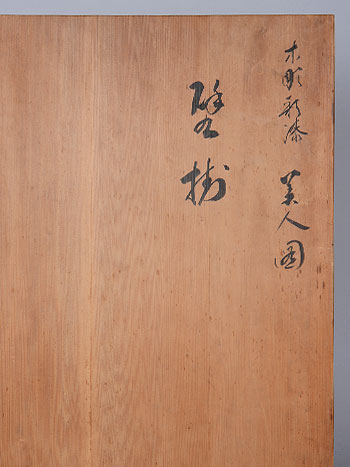 木彫彩漆 美人図
壁掛